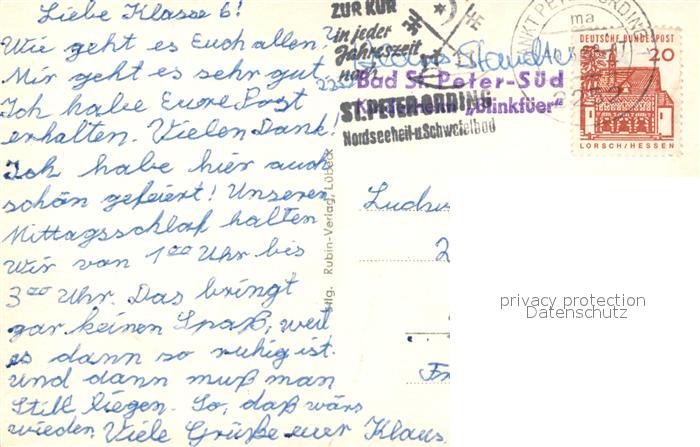 Liebe Klasse 6!
Wie geht es Euch allen?
Mir geht es sehr gut.
Ich habe Eure Post
erhalten. Vielen Dank!
Ich habe hier auch
schön gefeiert! Unseren
Mittagsschlaf halten
wir von 1⁰⁰ Uhr bis
3⁰⁰ Uhr. Das bringt
gar keinen Spaß, weil
es dann so ruhig ist.
und dann muß man
still liegen. So, daß wärs
wieder. Viele Grüße euer Klaus.
ZUR KUR
in jeder
Jahreszeit
nach
ST. PETER-ORDING
Nordseeheil-u.Schwefelbad
Klaus
2252
Bad St. Peter-Süd
"Blinkfüer"
SANKT PETER-ORDING
ma
2252
DEUTSCHE BUNDESPOST
20
LORSCH/HESSEN
Rubin-Verlag, Lübeck
Ludw
2
Fr
privacy protection
Datenschutz